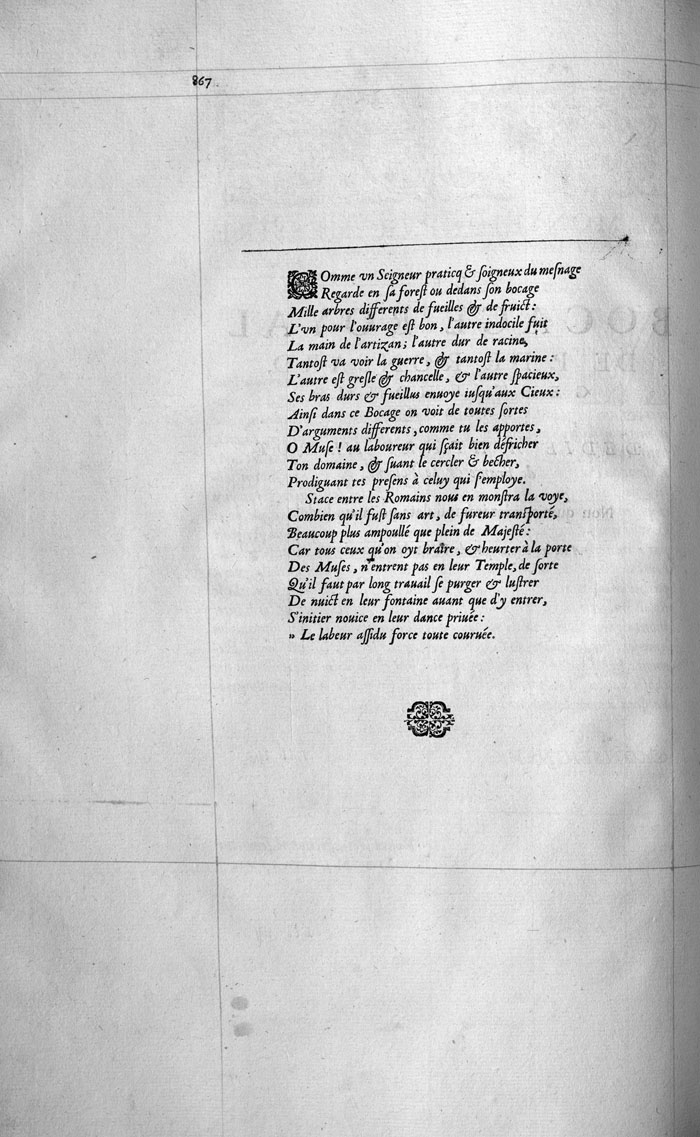 867
Comme vn Seigneur praticq & ſoigneux du meſnage
Regarde en ſa foreſt ou dedans ſon bocage
Mille arbres differents de fueilles & de fruict:
L'vn pour l'ouurage eſt bon, l'autre indocile fuit
La main de l'artizan; l'autre dur de racine,
Tantoſt va voir la guerre, & tantoſt la marine:
L'autre eſt greſle & chancelle, & l'autre ſpacieux,
Ses bras durs & fueillus enuoye iuſqu'aux Cieux:
Ainſi dans ce Bocage on voit de toutes ſortes
D'arguments differents, comme tu les apportes,
O Muſe! au laboureur qui ſçait bien défricher
Ton domaine, & ſuant le cercler & becher,
Prodiguant tes preſens à celuy qui ſ'employe.
Stace entre les Romains nous en monſtra la voye,
Combien qu'il fuſt ſans art, de fureur tranſporté,
Beaucoup plus ampoullé que plein de Majeſté:
Car tous ceux qu'on oyt braire, & heurter à la porte
Des Muſes, n'entrent pas en leur Temple, de ſorte
Qu'il faut par long trauail ſe purger & luſtrer
De nuict en leur fontaine auant que d'y entrer,
S'initier nouice en leur dance priuée:
» Le labeur aſſidu force toute couruée.